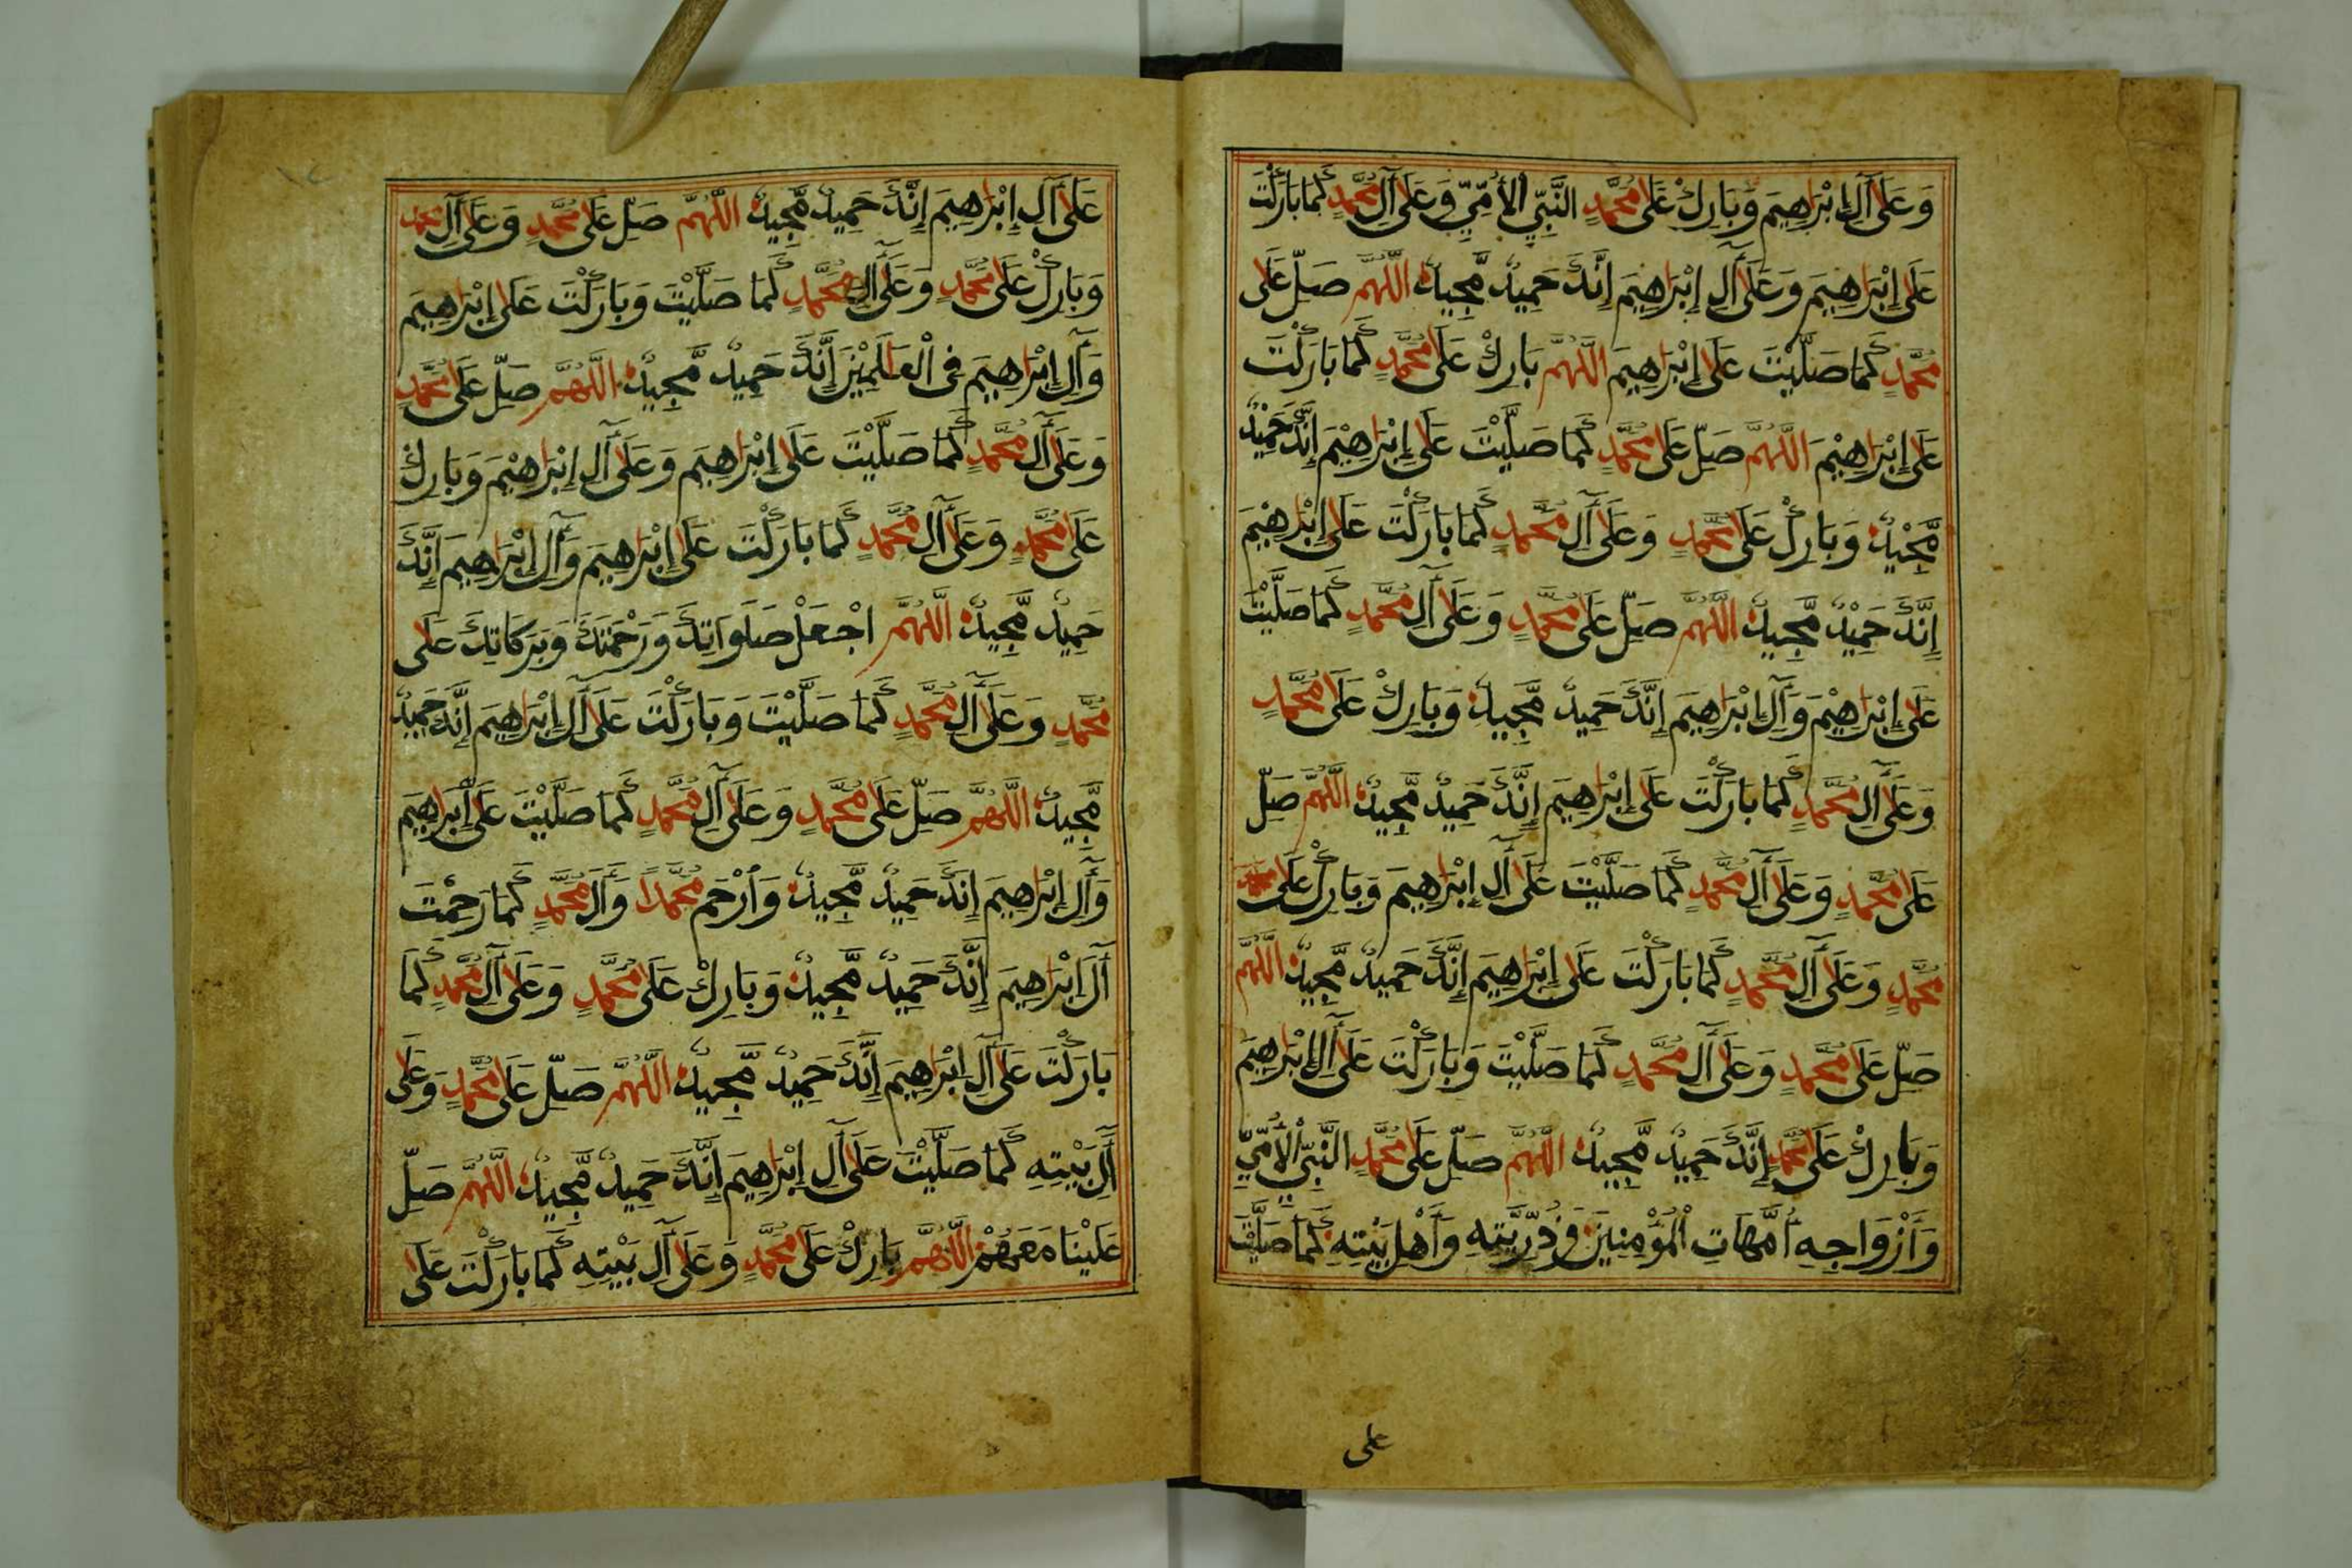 وَعَلَىٰ آلِ إِبْرَاهِيمَ وَبَارِكْ عَلَىٰ مُحَمَّدٍ النَّبِيِّ الْأُمِّيِّ وَعَلَىٰ آلِ مُحَمَّدٍ كَمَا بَارَكْتَ
عَلَىٰ إِبْرَاهِيمَ وَعَلَىٰ آلِ إِبْرَاهِيمَ إِنَّكَ حَمِيدٌ مَّجِيدٌ اللَّهُمَّ صَلِّ عَلَىٰ
مُحَمَّدٍ كَمَا صَلَّيْتَ عَلَىٰ إِبْرَاهِيمَ اللَّهُمَّ بَارِكْ عَلَىٰ مُحَمَّدٍ كَمَا بَارَكْتَ
عَلَىٰ إِبْرَاهِيْمَ اللَّهُمَّ صَلِّ عَلَىٰ مُحَمَّدٍ كَمَا صَلَّيْتَ عَلَىٰ إِبْرَاهِيْمَ إِنَّكَ حَمِيْدٌ
مَّجِيْدٌ وَبَارِكْ عَلَىٰ مُحَمَّدٍ وَعَلَىٰ آلِ مُحَمَّدٍ كَمَا بَارَكْتَ عَلَىٰ إِبْرَاهِيْمَ
إِنَّكَ حَمِيْدٌ مَّجِيدٌ اللَّهُمَّ صَلِّ عَلَىٰ مُحَمَّدٍ وَعَلَىٰ آلِ مُحَمَّدٍ كَمَا صَلَّيْتَ
عَلَىٰ إِبْرَاهِيْمَ وَآلِ إِبْرَاهِيمَ إِنَّكَ حَمِيدٌ مَّجِيدٌ وَبَارِكْ عَلَىٰ مُحَمَّدٍ
وَعَلَىٰ آلِ مُحَمَّدٍ كَمَا بَارَكْتَ عَلَىٰ إِبْرَاهِيمَ إِنَّكَ حَمِيدٌ مَّجِيدٌ اللَّهُمَّ صَلِّ
عَلَىٰ مُحَمَّدٍ وَعَلَىٰ آلِ مُحَمَّدٍ كَمَا صَلَّيْتَ عَلَىٰ آلِ إِبْرَاهِيمَ وَبَارِكْ عَلَىٰ
مُحَمَّدٍ وَعَلَىٰ آلِ مُحَمَّدٍ كَمَا بَارَكْتَ عَلَىٰ إِبْرَاهِيمَ إِنَّكَ حَمِيدٌ مَّجِيدٌ اللَّهُمَّ
صَلِّ عَلَىٰ مُحَمَّدٍ وَعَلَىٰ آلِ مُحَمَّدٍ كَمَا صَلَّيْتَ وَبَارَكْتَ عَلَىٰ آلِ إِبْرَاهِيمَ
وَبَارِكْ عَلَىٰ مُحَمَّدٍ إِنَّكَ حَمِيدٌ مَّجِيدٌ اللَّهُمَّ صَلِّ عَلَىٰ مُحَمَّدٍ النَّبِيِّ الْأُمِّيِّ
وَأَزْوَاجِهِ أُمَّهَاتِ الْمُؤْمِنِينَ وَذُرِّيَّتِهِ وَأَهْلِ بَيْتِهِ كَمَا صَلَّيْتَ
على
عَلَىٰ آلِ إِبْرَاهِيمَ إِنَّكَ حَمِيدٌ مَّجِيدٌ اللَّهُمَّ صَلِّ عَلَىٰ مُحَمَّدٍ وَعَلَىٰ آلِ مُحَمَّدٍ
وَبَارِكْ عَلَىٰ مُحَمَّدٍ وَعَلَىٰ آلِ مُحَمَّدٍ كَمَا صَلَّيْتَ وَبَارَكْتَ عَلَىٰ إِبْرَاهِيمَ
وَآلِ إِبْرَاهِيمَ فِي الْعَالَمِيْنَ إِنَّكَ حَمِيدٌ مَّجِيدٌ اللَّهُمَّ صَلِّ عَلَىٰ مُحَمَّدٍ
وَعَلَىٰ آلِ مُحَمَّدٍ كَمَا صَلَّيْتَ عَلَىٰ إِبْرَاهِيمَ وَعَلَىٰ آلِ إِبْرَاهِيْمَ وَبَارِكْ
عَلَىٰ مُحَمَّدٍ وَعَلَىٰ آلِ مُحَمَّدٍ كَمَا بَارَكْتَ عَلَىٰ إِبْرَاهِيمَ وَآلِ إِبْرَاهِيمَ إِنَّكَ
حَمِيدٌ مَّجِيدٌ اللَّهُمَّ اجْعَلْ صَلَوَاتِكَ وَرَحْمَتَكَ وَبَرَكَاتِكَ عَلَىٰ
مُحَمَّدٍ وَعَلَىٰ آلِ مُحَمَّدٍ كَمَا صَلَّيْتَ وَبَارَكْتَ عَلَىٰ آلِ إِبْرَاهِيمَ إِنَّكَ حَمِيدٌ
مَّجِيدٌ اللَّهُمَّ صَلِّ عَلَىٰ مُحَمَّدٍ وَعَلَىٰ آلِ مُحَمَّدٍ كَمَا صَلَّيْتَ عَلَىٰ إِبْرَاهِيمَ
وَآلِ إِبْرَاهِيمَ إِنَّكَ حَمِيدٌ مَّجِيدٌ وَارْحَمْ مُحَمَّدًا وَآلَ مُحَمَّدٍ كَمَا رَحِمْتَ
آلَ إِبْرَاهِيمَ إِنَّكَ حَمِيدٌ مَّجِيدٌ وَبَارِكْ عَلَىٰ مُحَمَّدٍ وَعَلَىٰ آلِ مُحَمَّدٍ كَمَا
بَارَكْتَ عَلَىٰ آلِ إِبْرَاهِيمَ إِنَّكَ حَمِيدٌ مَّجِيدٌ اللَّهُمَّ صَلِّ عَلَىٰ مُحَمَّدٍ وَعَلَىٰ
آلِ بَيْتِهِ كَمَا صَلَّيْتَ عَلَىٰ آلِ إِبْرَاهِيمَ إِنَّكَ حَمِيدٌ مَّجِيدٌ اللَّهُمَّ صَلِّ
عَلَيْنَا مَعَهُمْ اللَّهُمَّ بَارِكْ عَلَىٰ مُحَمَّدٍ وَعَلَىٰ آلِ بَيْتِهِ كَمَا بَارَكْتَ عَلَىٰ